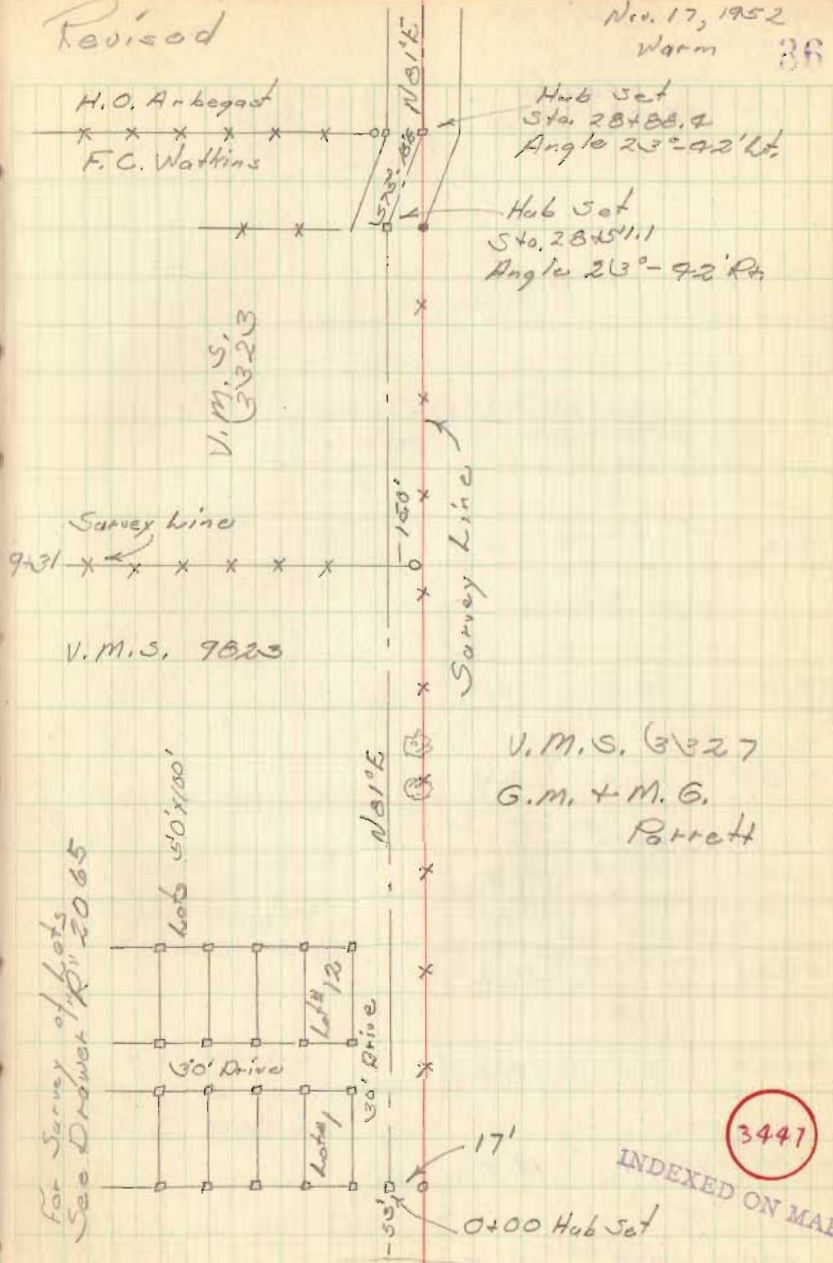 Revised
Nov. 17, 1952
Warm
36
H.O. Arbegast
F.C. Watkins
N81°E
Hub Set
Sta. 28+88.4
Angle 23°-42' Lt.
Hub Set
Sta. 28+51.1
Angle 23°-42' Rt.
V.M.S.
3323
Survey Line
9+31
150'
Survey Line
V.M.S. 9823
V.M.S. 3327
G.M. + M.G.
Parrett
N81°E
Lots 50'x100'
For Survey of Lots
See Drawer "R" 2065
Lot# 12
30' Drive
30' Drive
Lot# 1
17'
0+00 Hub Set
3447
INDEXED ON MAP